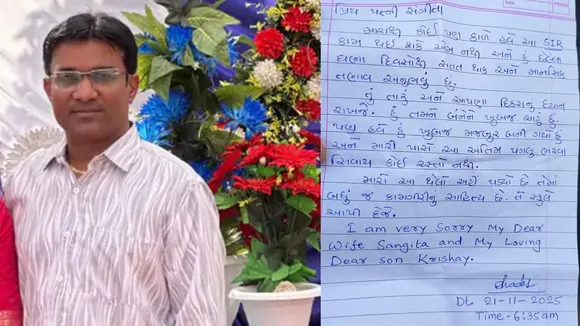 પ્રિય પત્ની સંગીતા
મારાથી કોઈ પણ કાળે હવે આ SIR
કામ થઈ શકે એમ નથી અને હું છેલ્લા
ઘણા દિવસોથી સતત થાક અને માનસિક
તણાવ અનુભવું છું.
તું તારું અને આપણા દિકરાનું ધ્યાન
રાખજે. હું તમને બંનેને ખૂબજ ચાહું છું.
પણ હવે હું ખૂબજ મજબૂર બની ગયો છું
અને મારી પાસે આ અંતિમ પગલું ભરવા
સિવાય કોઈ રસ્તો નથી.
મારો આ થેલો અહીં પડ્યો છે તેમાં
બધું જ કામગીરીનું સાહિત્ય છે. તે સ્કૂલે
આપી દેજે.
I am very Sorry My Dear
Wife Sangita and My Loving
Dear son Krishay.
Dt. 21-11-2025
Time - 6:35am